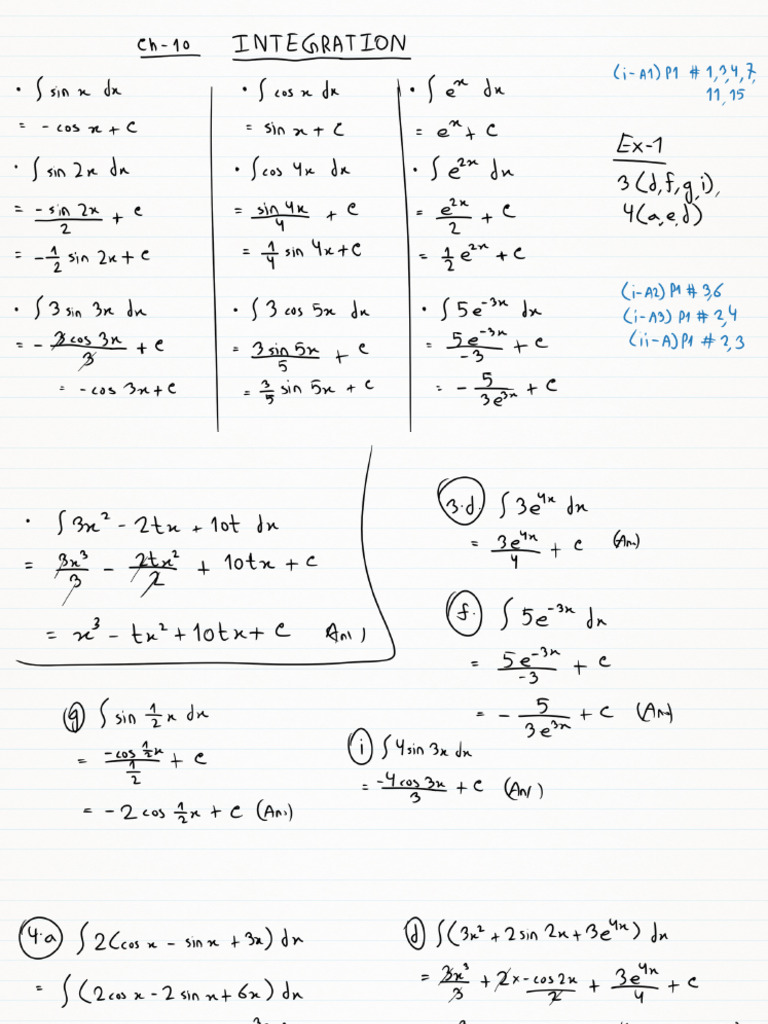 Ch-10 INTEGRATION
(i-A1) P1 # 1,3,4,7,
11, 15
Ex-1
3(d,f,g,i),
4(a,e,d)
(i-A2) P1 # 3,6
(i-A3) P1 # 2,4
(ii-A) P1 # 2,3
• ∫ sin x dx
= -cos x + c
• ∫ sin 2x dx
= -sin 2x/2 + c
= -1/2 sin 2x + c
• ∫ 3 sin 3x dx
= - 3 cos 3x/3 + c
= -cos 3x + c
• ∫ cos x dx
= sin x + c
• ∫ cos 4x dx
= sin 4x/4 + c
= 1/4 sin 4x + c
• ∫ 3 cos 5x dx
= 3 sin 5x/5 + c
= 3/5 sin 5x + c
• ∫ e^x dx
= e^x + c
• ∫ e^2x dx
= e^2x/2 + c
= 1/2 e^2x + c
• ∫ 5e^-3x dx
= 5e^-3x/-3 + c
= - 5/3e^3x + c
• ∫ 3x² - 2tx + 10t dx
= 3x³/3 - 2tx²/2 + 10tx + c
= x³ - tx² + 10tx + c Ans)
3.d. ∫ 3e^4x dx
= 3e^4x/4 + c (Ans)
f. ∫ 5e^-3x dx
= 5e^-3x/-3 + c
= - 5/3e^3x + c (Ans)
g ∫ sin 1/2 x dx
= -cos 1/2 x / 1/2 + c
= -2 cos 1/2 x + c (Ans)
i ∫ 4 sin 3x dx
= -4 cos 3x/3 + c (Ans)
4.a ∫ 2(cos x - sin x + 3x) dx
= ∫ (2cos x - 2 sin x + 6x) dx
d ∫ (3x² + 2 sin 2x + 3e^4x) dx
= 3x³/3 + 2 x -cos 2x/2 + 3e^4x/4 + c